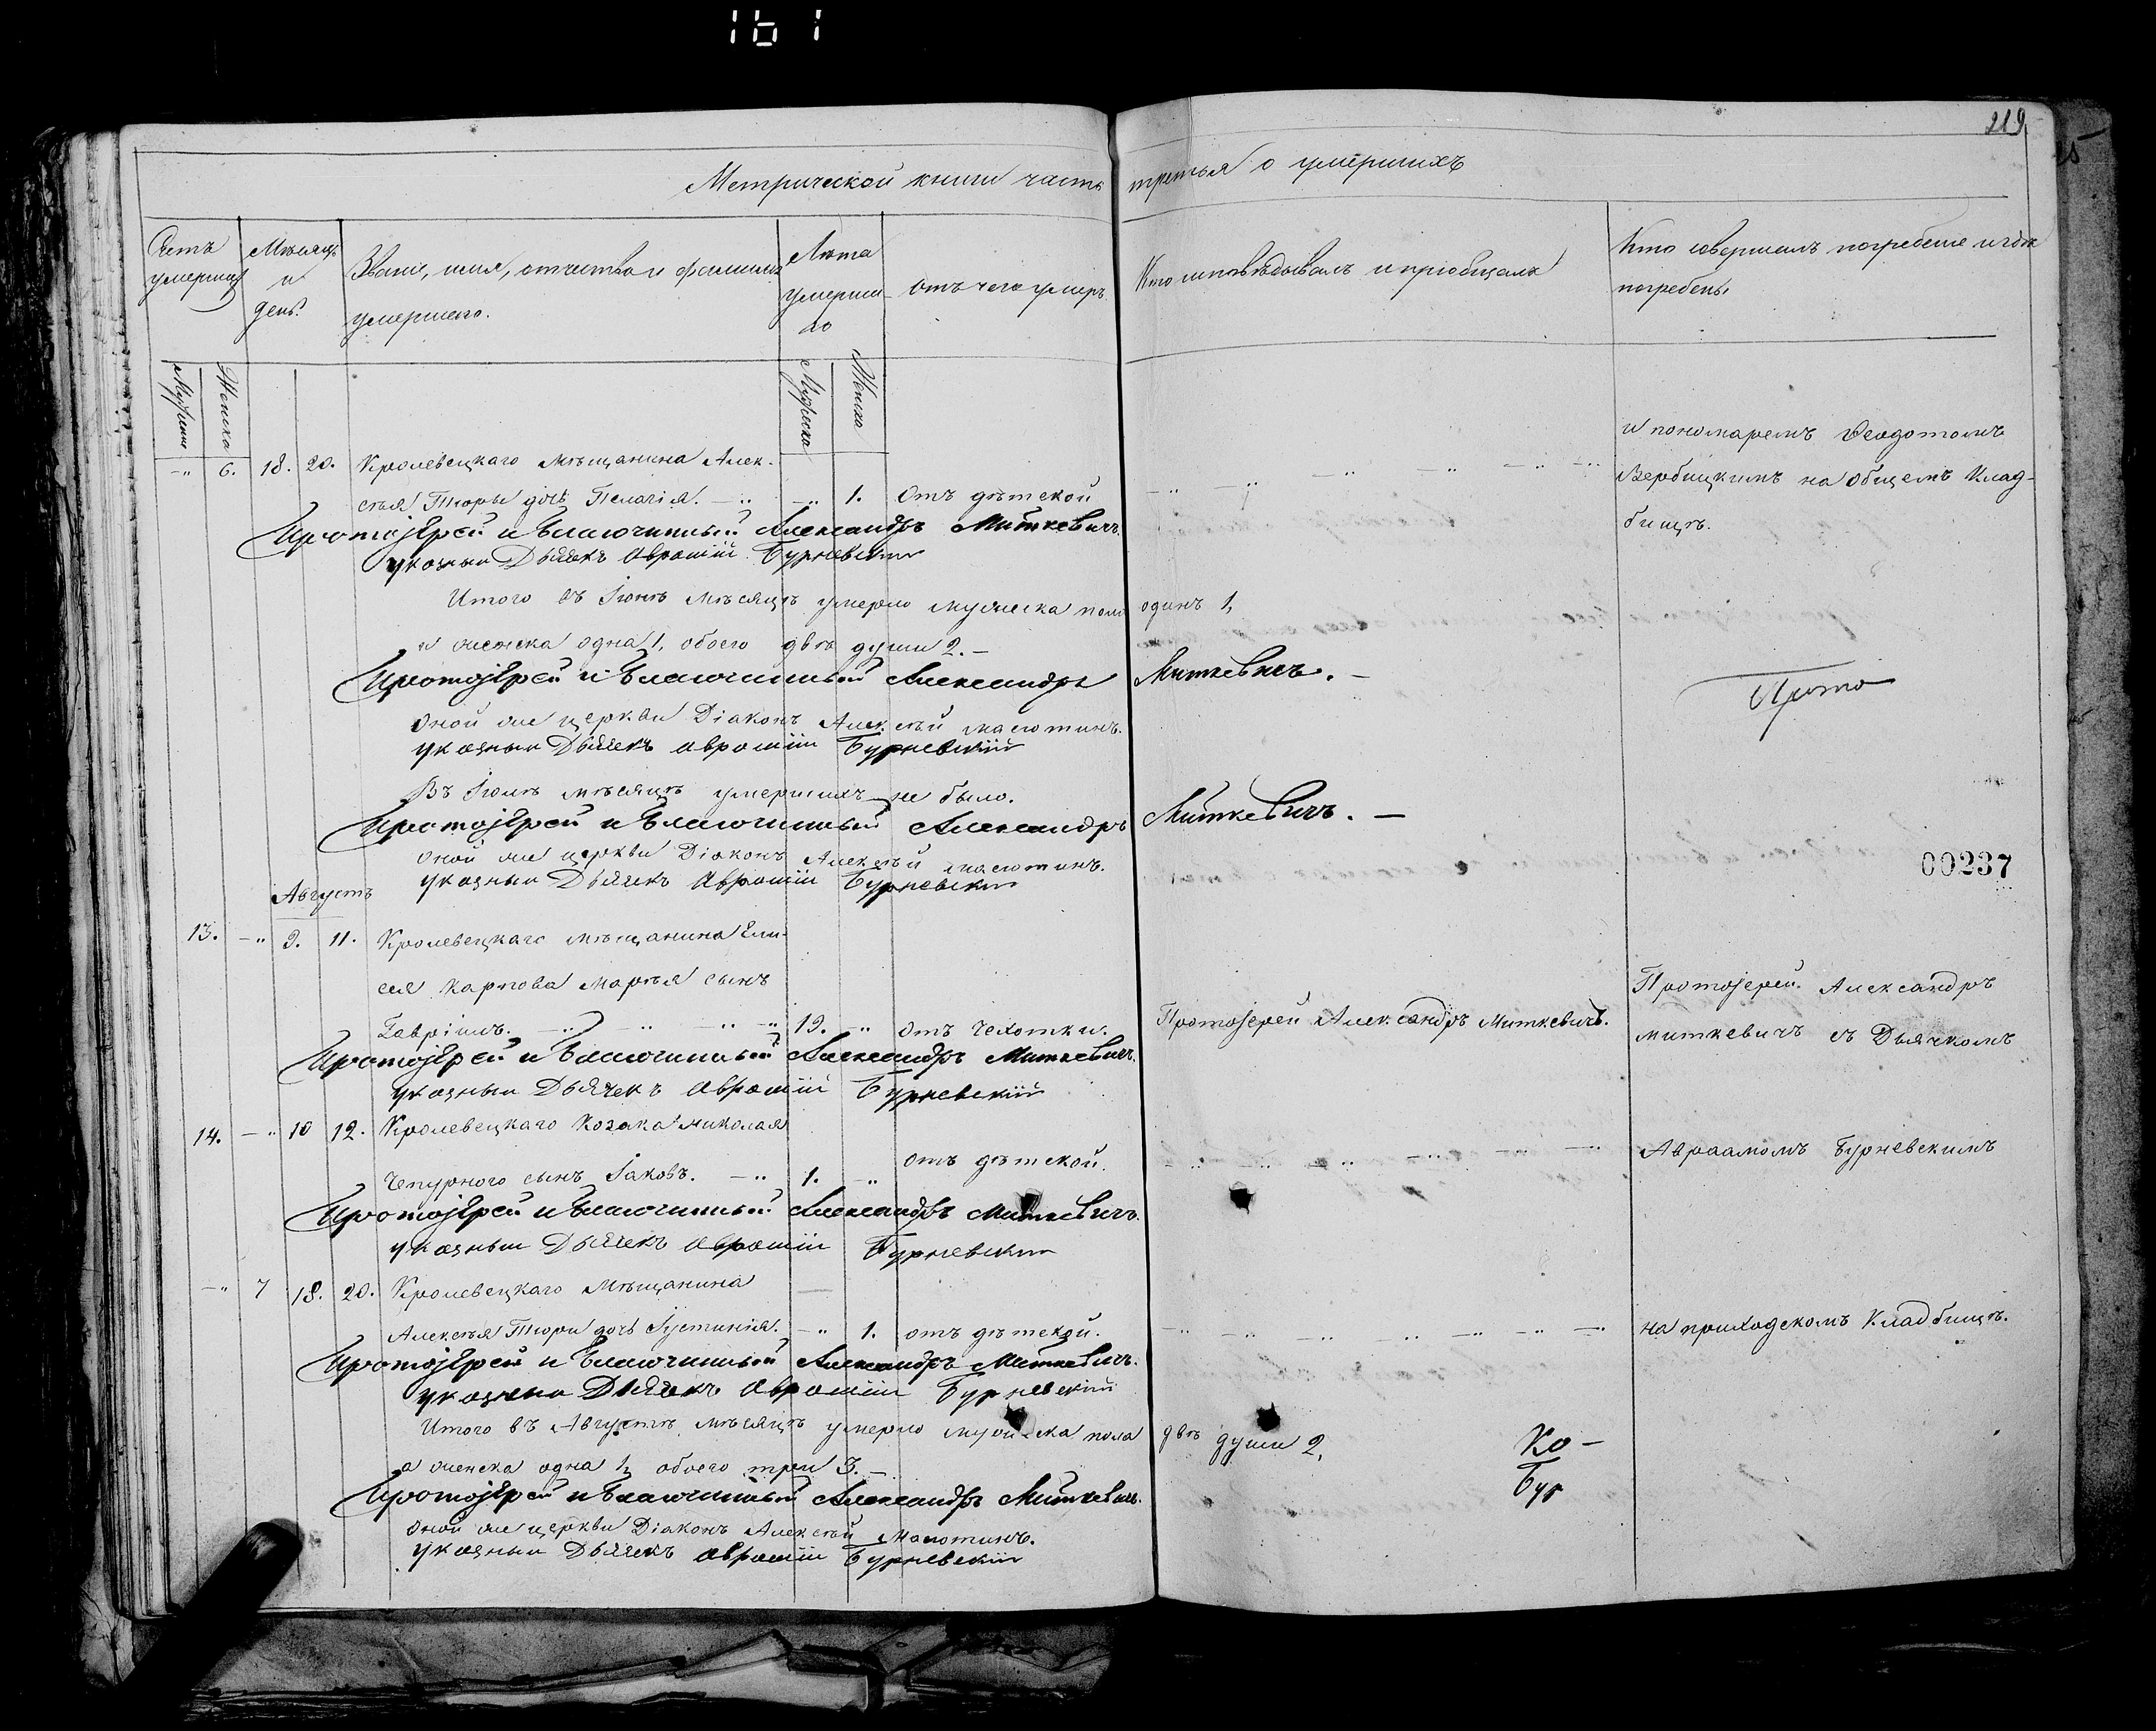 161
219
Метрической книги часть третья о умершихъ
Счетъ умершихъ
Мѣсяцъ и день.
Званіе, имя, отчество и фамилія умершаго.
Лѣта умершаго
отъ чего умеръ
Кто исповѣдывалъ и пріобщалъ
Кто совершалъ погребеніе и гдѣ погребены
Мужеска
Женска
Мужеска
Женска
и пономаремъ Ѳеодотомъ
-" 6. 18. 20. Кролевецкаго мѣщанина Алек-
Вербицкимъ на общемъ клад-
сѣя Тюры дочь Пелагія. -" -" 1. отъ дѣтской
бищѣ.
Протоіерей и Благочинный Александръ Миткевичъ.
указный Дьячекъ Аврамій Бурневскій
Итого въ Іюнѣ мѣсяцѣ умерло мужеска пола одинъ 1,
и женска одна 1, обоего двѣ души 2. -
Протоіерей и Благочинный Александръ Миткевичъ. -
Прото
оной же церкви Діаконъ Алексѣй Масютинъ.
указный Дьячекъ Аврамій Бурневскій
Въ Іюлѣ мѣсяцѣ умершихъ не было.
Протоіерей и Благочинный Александръ Миткевичъ. -
оной же церкви Діаконъ Алексѣй Масютинъ.
00237
указный Дьячекъ Аврамій Бурневскій
Августъ
13. -" 9. 11. Кролевецкаго мѣщанина Ели-
сея Карпова Марѣя сынъ
Протоіерей Александръ
Гавріилъ. -" -" 19. -" отъ чехотки. Протоіерей Александръ Миткевичъ.
Миткевичъ съ Дьячкомъ
Протоіерей и Благочинный Александръ Миткевичъ.
указный Дьячекъ Аврамій Бурневскій
14. -" 10 12. Кролевецкаго козака Николая
Авраамомъ Бурневскимъ
Чепурного сынъ Іаковъ. -" 1. -" отъ дѣтской.
Протоіерей и Благочинный Александръ Миткевичъ.
указный Дьячекъ Аврамій Бурневскій
-" 7 18. 20. Кролевецкаго Мѣщанина
Алексѣя Тюри дочь Іустинія. -" 1. отъ дѣтской.
на приходскомъ Кладбищѣ.
Протоіерей и Благочинный Александръ Миткевичъ.
указный Дьячекъ Аврамій Бурневскій
Итого въ Августѣ мѣсяцѣ умерло мужеска пола двѣ души 2,
Ко-
Бур
а женска одна 1, обоего три 3. -
Протоіерей и Благочинный Александръ Миткевичъ.
оной же церкви Діаконъ Алексѣй Масютинъ.
указный Дьячекъ Аврамій Бурневскій